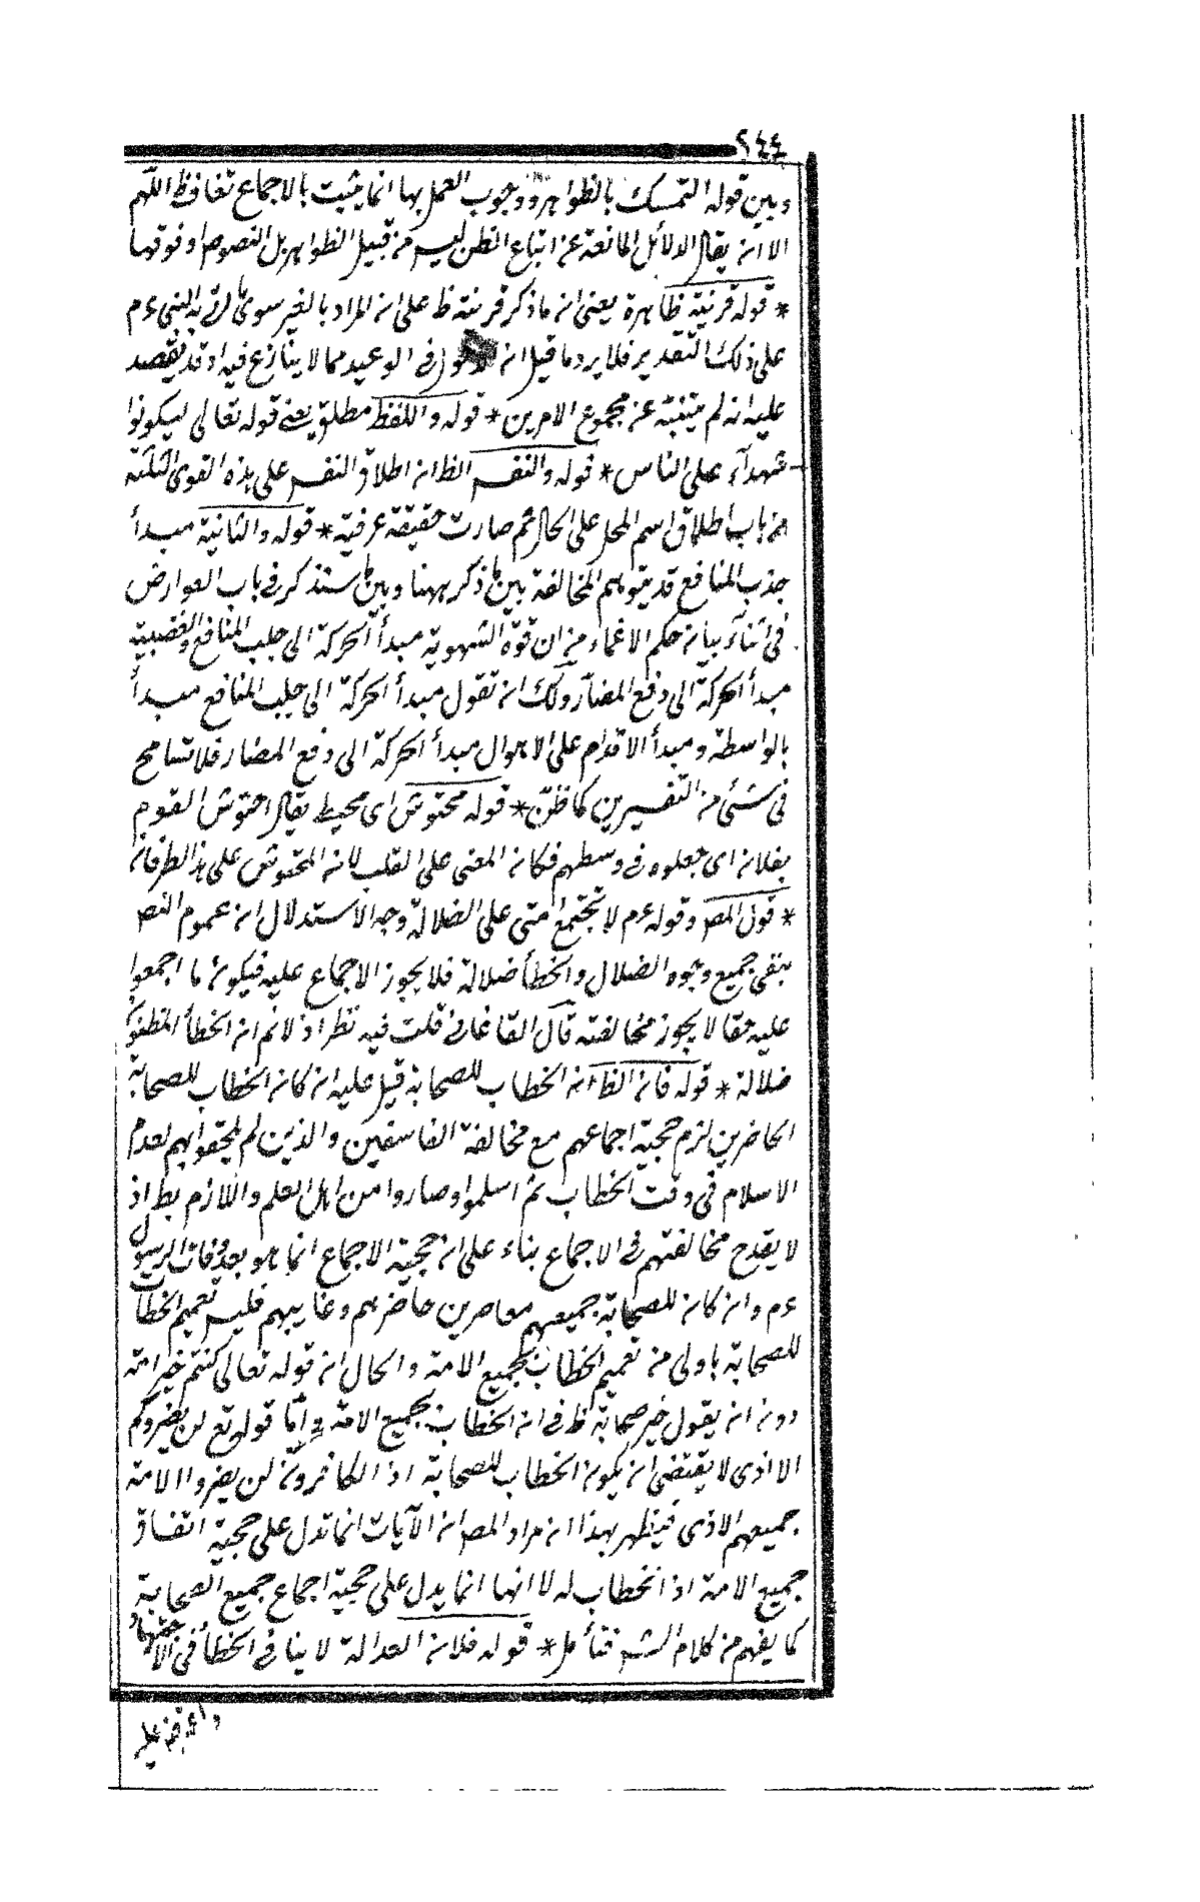 ٢٤٤
وبين قوله التمسك بالظواهر ووجوب العمل بها انما يثبت بالاجماع تغافظ اللهم
الا ان يقال الدلائل المانعة عن اتباع الظن ليس من قبيل الظواهر بل النصوص او فوقها
* قوله قرنية ظاهرة يعنى ان ما ذكر قرينة ظ على ان المراد بالغير سوى ما اتى به النبى ءم
على ذلك التقدير فلا يرد ما قيل ان فى الوعيد مما لا ينازع فيه او قد يقصد
عليه انه لم يتغبه عن مجموع الامرين * قوله واللفظ مطلق يعنى قوله تعالى ليكونوا
شهدآء على الناس * قوله والنفس الظ ان اطلاق النفس على هذه القوى الثلثة
من باب اطلاق اسم المحل على الحال ثم صارت حقيقة عرفية * قوله والثانية مبدأ
جذب المنافع قد يتوهم المخالفة بين ما ذكر ههنا وبين ما ستذكر فى باب العوارض
فى اثناء بيان حكم الاغماء من ان قوة الشهوية مبدأ الحركة الى جلب المنافع والغضبية
مبدأ الحركة الى دفع المضآر ولك ان تقول مبدأ الحركة الى جلب المنافع مبدأ
بالواسطة ومبدأ الاقدام على الاهوال مبدأ الحركة الى دفع المضار فلا تسامح
فى شئ من التفسيرين كما ظنّ * قوله محتوش اى محيط يقال احتوش القوم
بفلان اى جعلوه فى وسطهم فكان المعنى على القلب لان المحتوش على هذا الطرفان
* قول المص وقوله ءم لا تجتمع امتى على الضلالة وجه الاستدلال ان عموم النص
ينفى جميع وجوه الضلال والخطأ ضلالة فلا يجوز الاجماع عليه فيكون ما اجمعوا
عليه حقا لا يجوز مخالفته قال القاغانى قلت فيه نظر اذ لانم ان الخطأ المظنون
ضلالة * قوله فان الظ ان الخطاب للصحابة قيل عليه ان كان الخطاب للصحابة
الحاضرين لزم حجية اجماعهم مع مخالفة الفاسقين والذين لم يلحقوا بهم لعدم
الاسلام فى وقت الخطاب ثم اسلموا وصاروا من اهل العلم واللازم بط اذ
لا يقدح مخالفتهم فى الاجماع بناء على ان حجية الاجماع انما هو بعد وفات الرسول
ءم وان كان للصحابة جميعهم معاصرين حاضرهم وغايبهم فليس تعميم الخطاب
للصحابة باولى من تعميم الخطاب لجميع الامة والحال ان قوله تعالى كنتم خير امة
دون ان يقول خير صحابة ظ فى ان الخطاب بجميع الامة وامّا قوله تع لن يضروكم
الا اذى لا يقتضى ان يكون الخطاب للصحابة اذ الكافرون لن يضروا الامة
جميعهم الا اذى فيظهر بهذا ان مراد المص ان الآيات انما تدل على حجية اتفاق
جميع الامة اذ الخطاب له لا انها انما يدل على حجية اجماع جميع الصحابة
كما يفهم من كلام الش فتأمل * قوله فلان العدالة لا ينافى الخطأ فى الاجتهاد